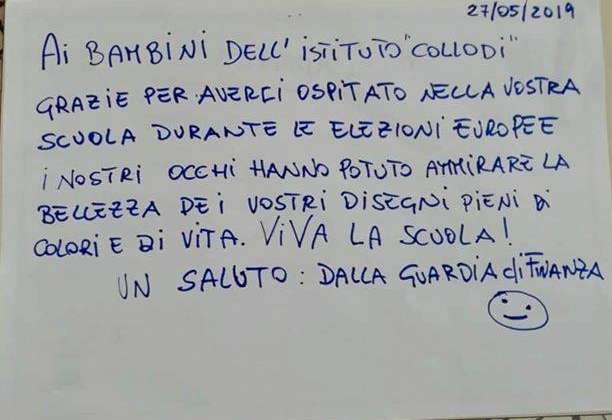 27/05/2019
Ai BAMBINI DELL'ISTITUTO "COLLODI"
GRAZIE PER AVERCI OSPITATO NELLA VOSTRA
SCUOLA DURANTE LE ELEZIONI EUROPEE
I NOSTRI OCCHI HANNO POTUTO AMMIRARE LA
BELLEZZA DEI VOSTRI DISEGNI PIENI DI
COLORI E DI VITA. VIVA LA SCUOLA!
UN SALUTO: DALLA GUARDIA di FINANZA